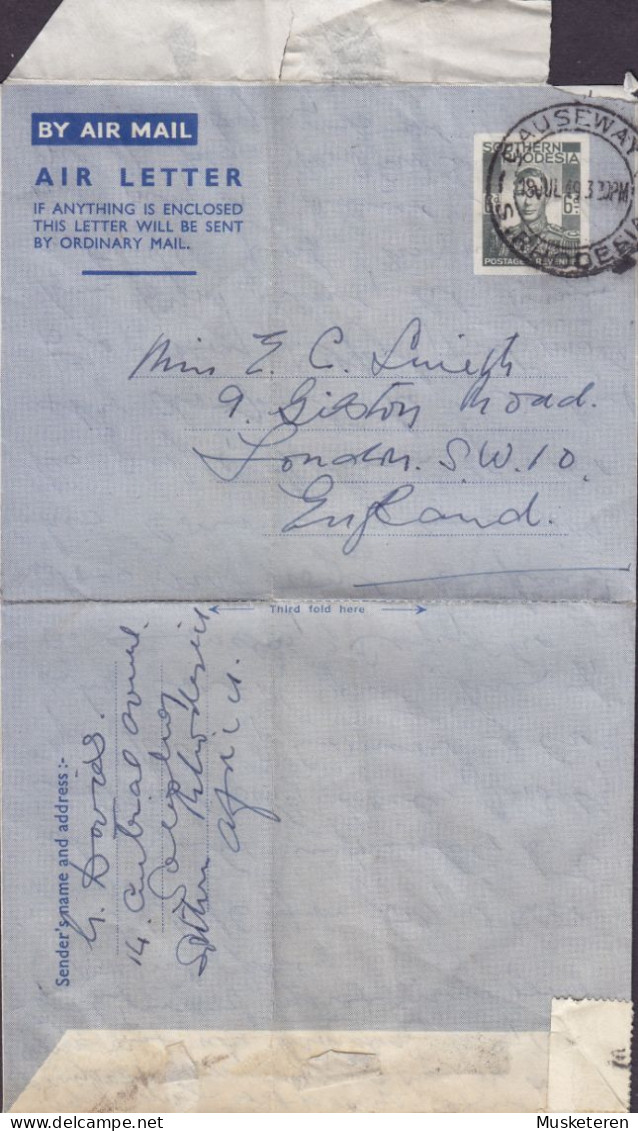 BY AIR MAIL
AIR LETTER
IF ANYTHING IS ENCLOSED
THIS LETTER WILL BE SENT
BY ORDINARY MAIL.
SOUTHERN
RHODESIA
6D 6D
POSTAGE & REVENUE
CAUSEWAY
18 JUL 49 3 30PM
S. RHODESIA
Miss E. C. Smith
9. Gilston Road.
London. S.W.10.
England.
Third fold here
Sender's name and address :-
G. Davies.
14. Central Avenue.
Salisbury
Southern Rhodesia
Africa.
Musketeren